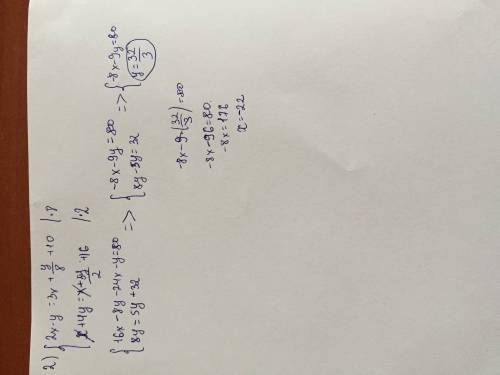 2) { 2x - y = 3x + y/8 + 10 | · 8
x + 4y = x + 5y/2 + 16 | · 2
{ 16x - 8y - 24x - y = 80
8y = 5y + 32
=> { -8x - 9y = 80
8y - 5y = 32
=> { -8x - 9y = 80
y = 32/3
-8x - 9 · (32/3) = 80
-8x - 96 = 80
-8x = 176
x = -22